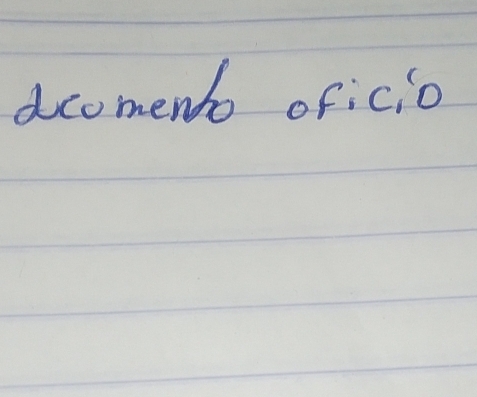 dcumento oficio